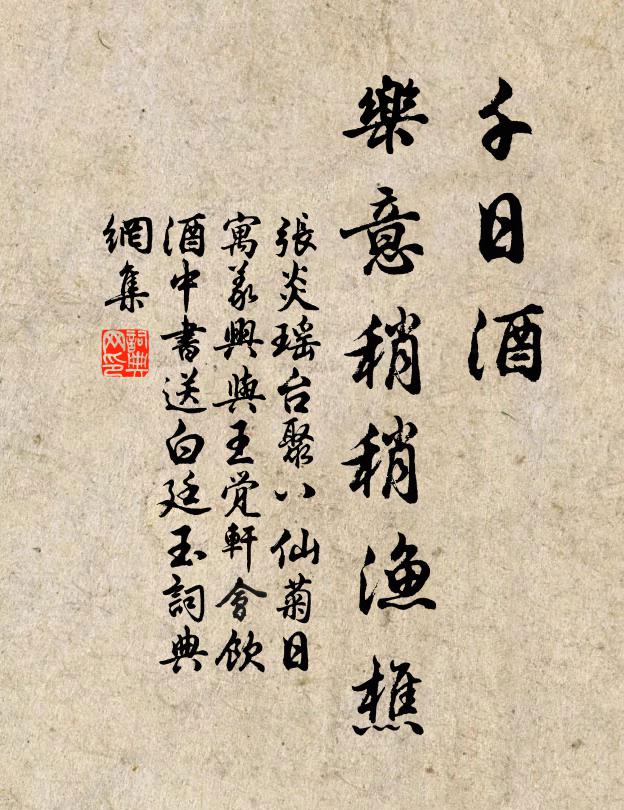 千日酒
樂意稍稍漁樵
張炎瑶台聚八仙菊日
寓義興與王觉軒會飲
酒中書送白廷玉詞典
網集
詞典网印